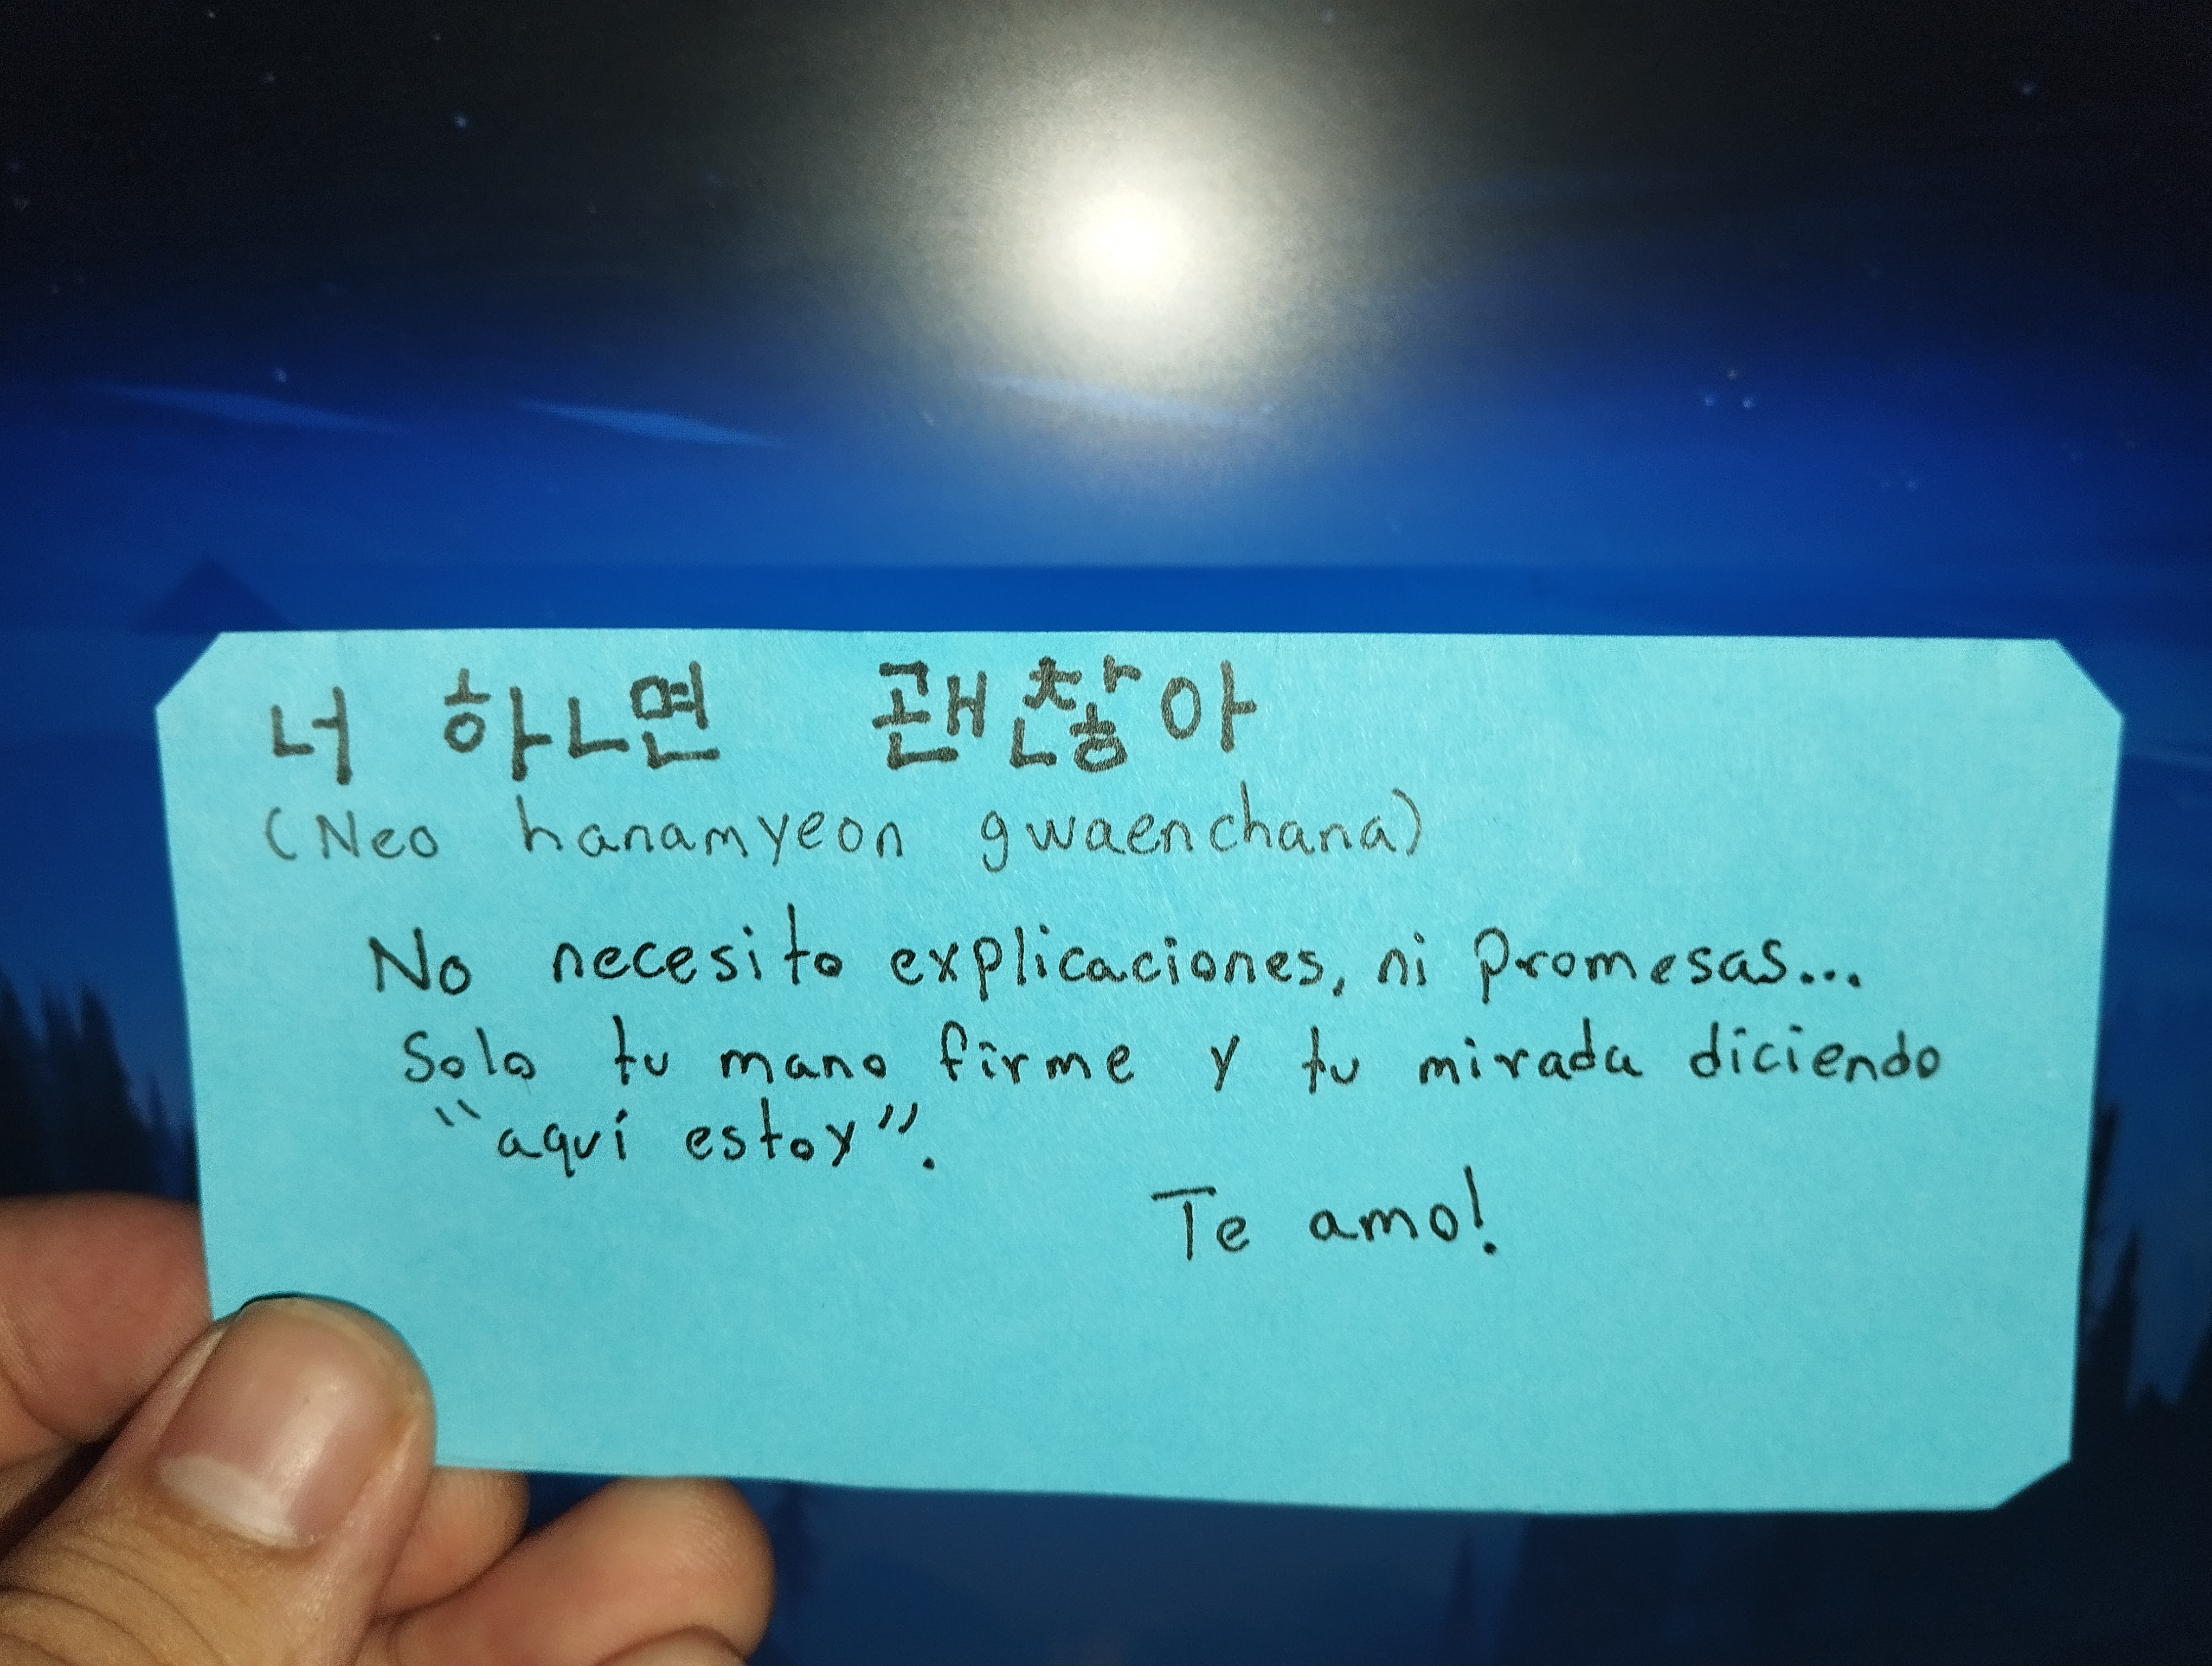 너 하ㄴ면 괜찮아
(Neo hanamyeon gwaenchana)
No necesito explicaciones, ni promesas...
Solo tu mano firme y tu mirada diciendo
"aquí estoy".
Te amo!